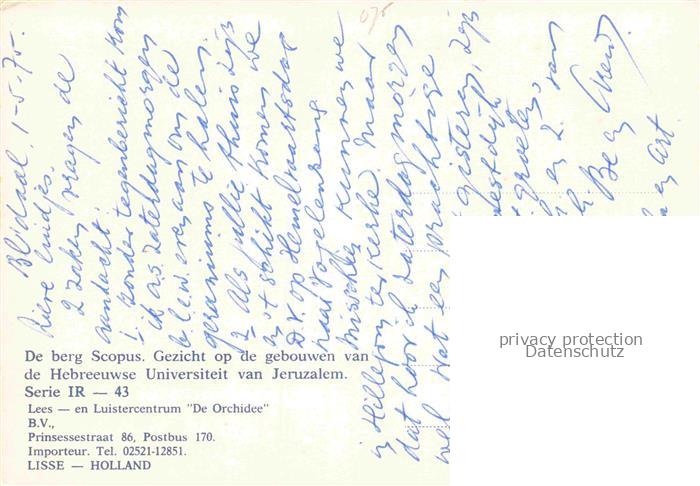 Bl'daal, 1-5-75.
Lieve luidjes,
2 zaken vragen de
aandacht.
1. zonder tegenbericht kom
ik a.s. zaterdagmorgen
b.l.e.w. even aan om de
geraniums te halen.
2 Als jullie thuis zijn
en 't schikt komen we
D.V. op Hemelvaartsdag
naar Vogelenzang
Misschien kunnen we
in Hillegom te kerke. Maar
dat hoor ik zaterdagmorgen
wel. Wat een prachtige
gisteren, zijn
groeten,
en 2. van
Be en
en Art.
075
De berg Scopus. Gezicht op de gebouwen van
de Hebreeuwse Universiteit van Jeruzalem.
Serie IR — 43
Lees — en Luistercentrum "De Orchidee"
B.V.,
Prinsessestraat 86, Postbus 170.
Importeur. Tel. 02521-12851.
LISSE — HOLLAND
privacy protection
Datenschutz